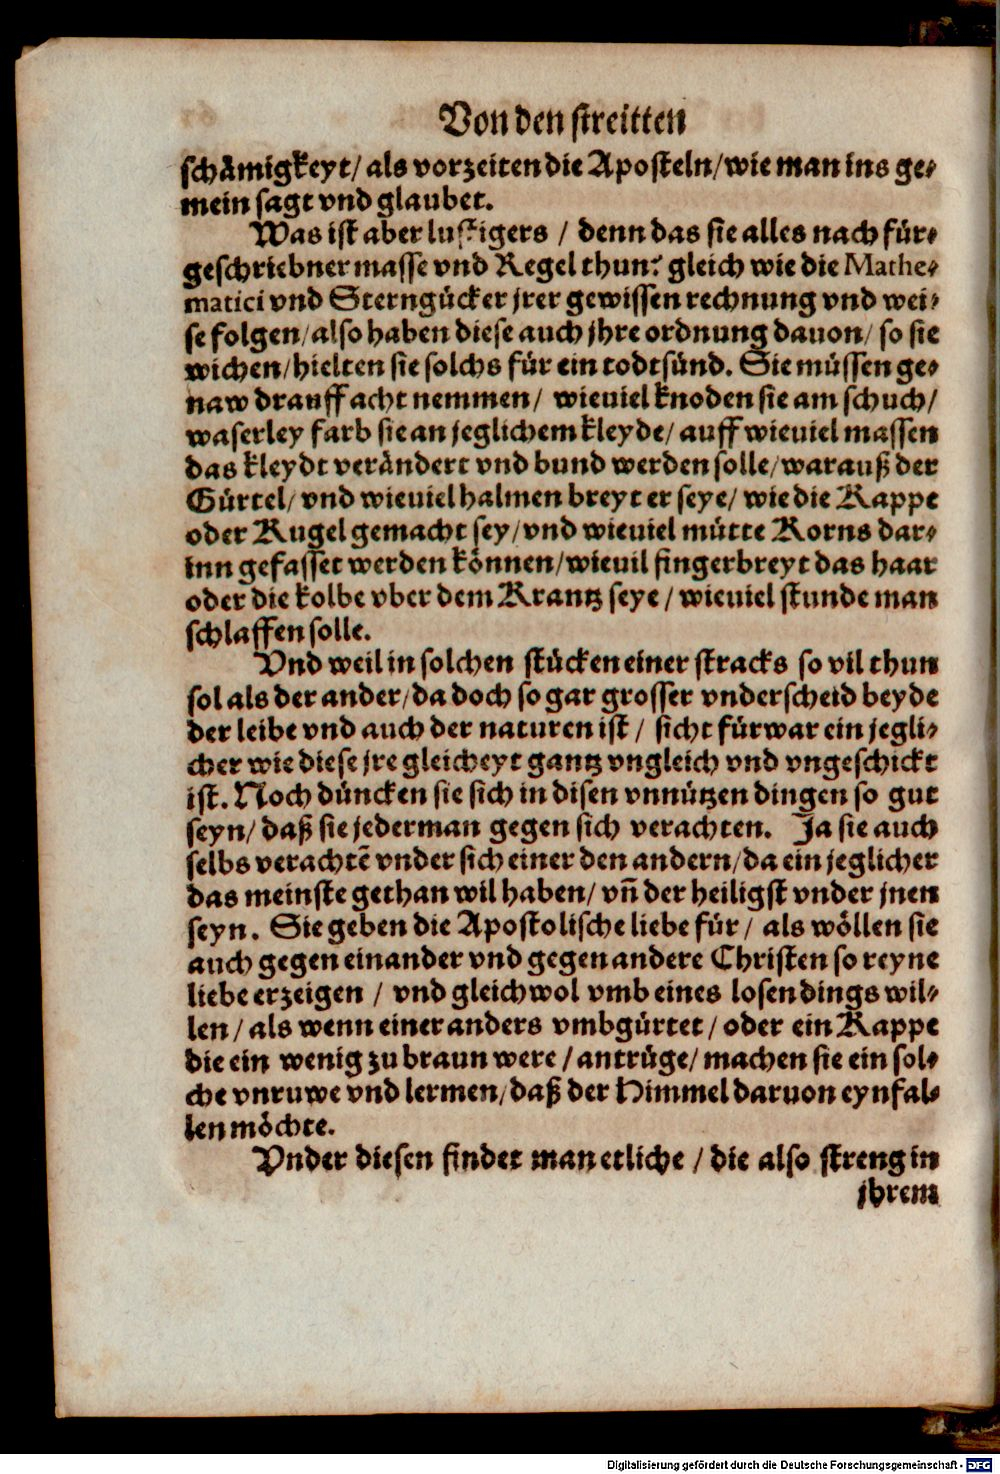 Von den streitten
schämigkeyt/ als vorzeiten die Aposteln/ wie man ins ge-
mein sagt vnd glaubet.
Was ist aber lustigers / denn das sie alles nach für-
geschriebner masse vnd Regel thun? gleich wie die Mathe-
matici vnd Sterngücker jrer gewissen rechnung vnd wei-
se folgen/ also haben diese auch jhre ordnung dauon/ so sie
wichen/ hielten sie solchs für ein todtsünd. Sie müssen ge-
naw drauff acht nemmen/ wieuiel knoden sie am schuch/
waserley farb sie an jeglichem kleyde/ auff wieuiel massen
das kleydt verändert vnd bund werden solle/ warauß der
Gürtel/ vnd wieuiel halmen breyt er seye/ wie die Kappe
oder Kugel gemacht sey/ vnd wieuiel mütte Korns dar-
inn gefasset werden können/ wieuil fingerbreyt das haar
oder die kolbe vber dem Krantz seye / wieuiel stunde man
schlaffen solle.
Vnd weil in solchen stücken einer stracks so vil thun
sol als der ander/ da doch so gar grosser vnderscheid beyde
der leibe vnd auch der naturen ist / sicht fürwar ein jegli-
cher wie diese jre gleicheyt gantz vngleich vnd vngeschickt
ist. Noch düncken sie sich in disen vnnützen dingen so gut
seyn/ daß sie jederman gegen sich verachten. Ja sie auch
selbs verachtē vnder sich einer den andern/ da ein jeglicher
das meinste gethan wil haben/ vñ der heiligst vnder jnen
seyn. Sie geben die Apostolische liebe für / als wöllen sie
auch gegen einander vnd gegen andere Christen so reyne
liebe erzeigen / vnd gleichwol vmb eines losen dings wil-
len/ als wenn einer anders vmbgürtet/ oder ein Kappe
die ein wenig zu braun were / antrüge/ machen sie ein sol-
che vnruwe vnd lermen/ daß der Himmel daruon eynfal-
len möchte.
Vnder diesen findet man etliche / die also streng in
jhrem
Digitalisierung gefördert durch die Deutsche Forschungsgemeinschaft - DFG